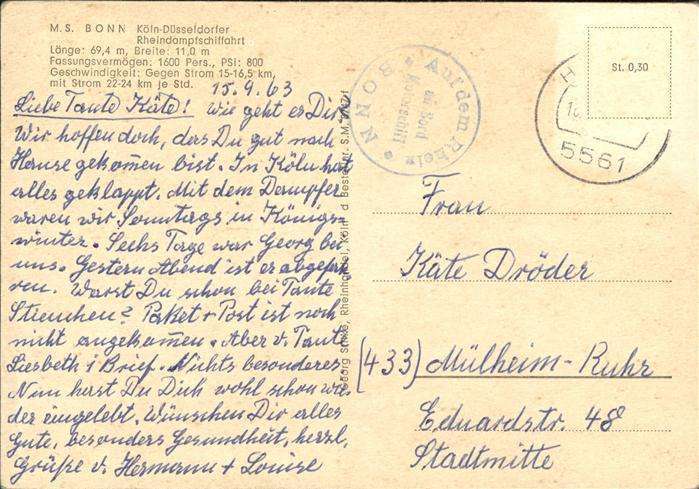 M.S. BONN Köln-Düsseldorfer
Rheindampfschiffahrt
Länge: 69,4 m, Breite: 11,0 m
Fassungsvermögen: 1600 Pers., PSi: 800
Geschwindigkeit: Gegen Strom 15-16,5 km,
mit Strom 22-24 km je Std.
15.9.63
Liebe Tante Käte! Wie geht es Dir
Wir hoffen doch, dass Du gut nach
Hause gekommen bist. In Köln hat
alles geklappt. Mit dem Dampfer
waren wir Sonntags in Königs-
winter. Sechs Tage war Georg bei
uns. Gestern Abend ist er abgefah
ren. Warst Du schon bei Tante
Stienchen? Paket + Post ist noch
nicht angekommen. Aber v. Tante
Liesbeth 1 Brief. Nichts besonderes
Nun hast Du Dich wohl schon wie-
der eingelebt. Wünschen Dir alles
Gute, besonders Gesundheit, herzl.
Grüße v. Hermann + Louise
Rheinhan Köln Bestell-Nr. S.M.
Auf dem Rhein
an Bord
BONN
St. 0,30
5561
Frau
Käte Dröder
(433) Mülheim-Ruhr
Eduardstr. 48
Stadtmitte